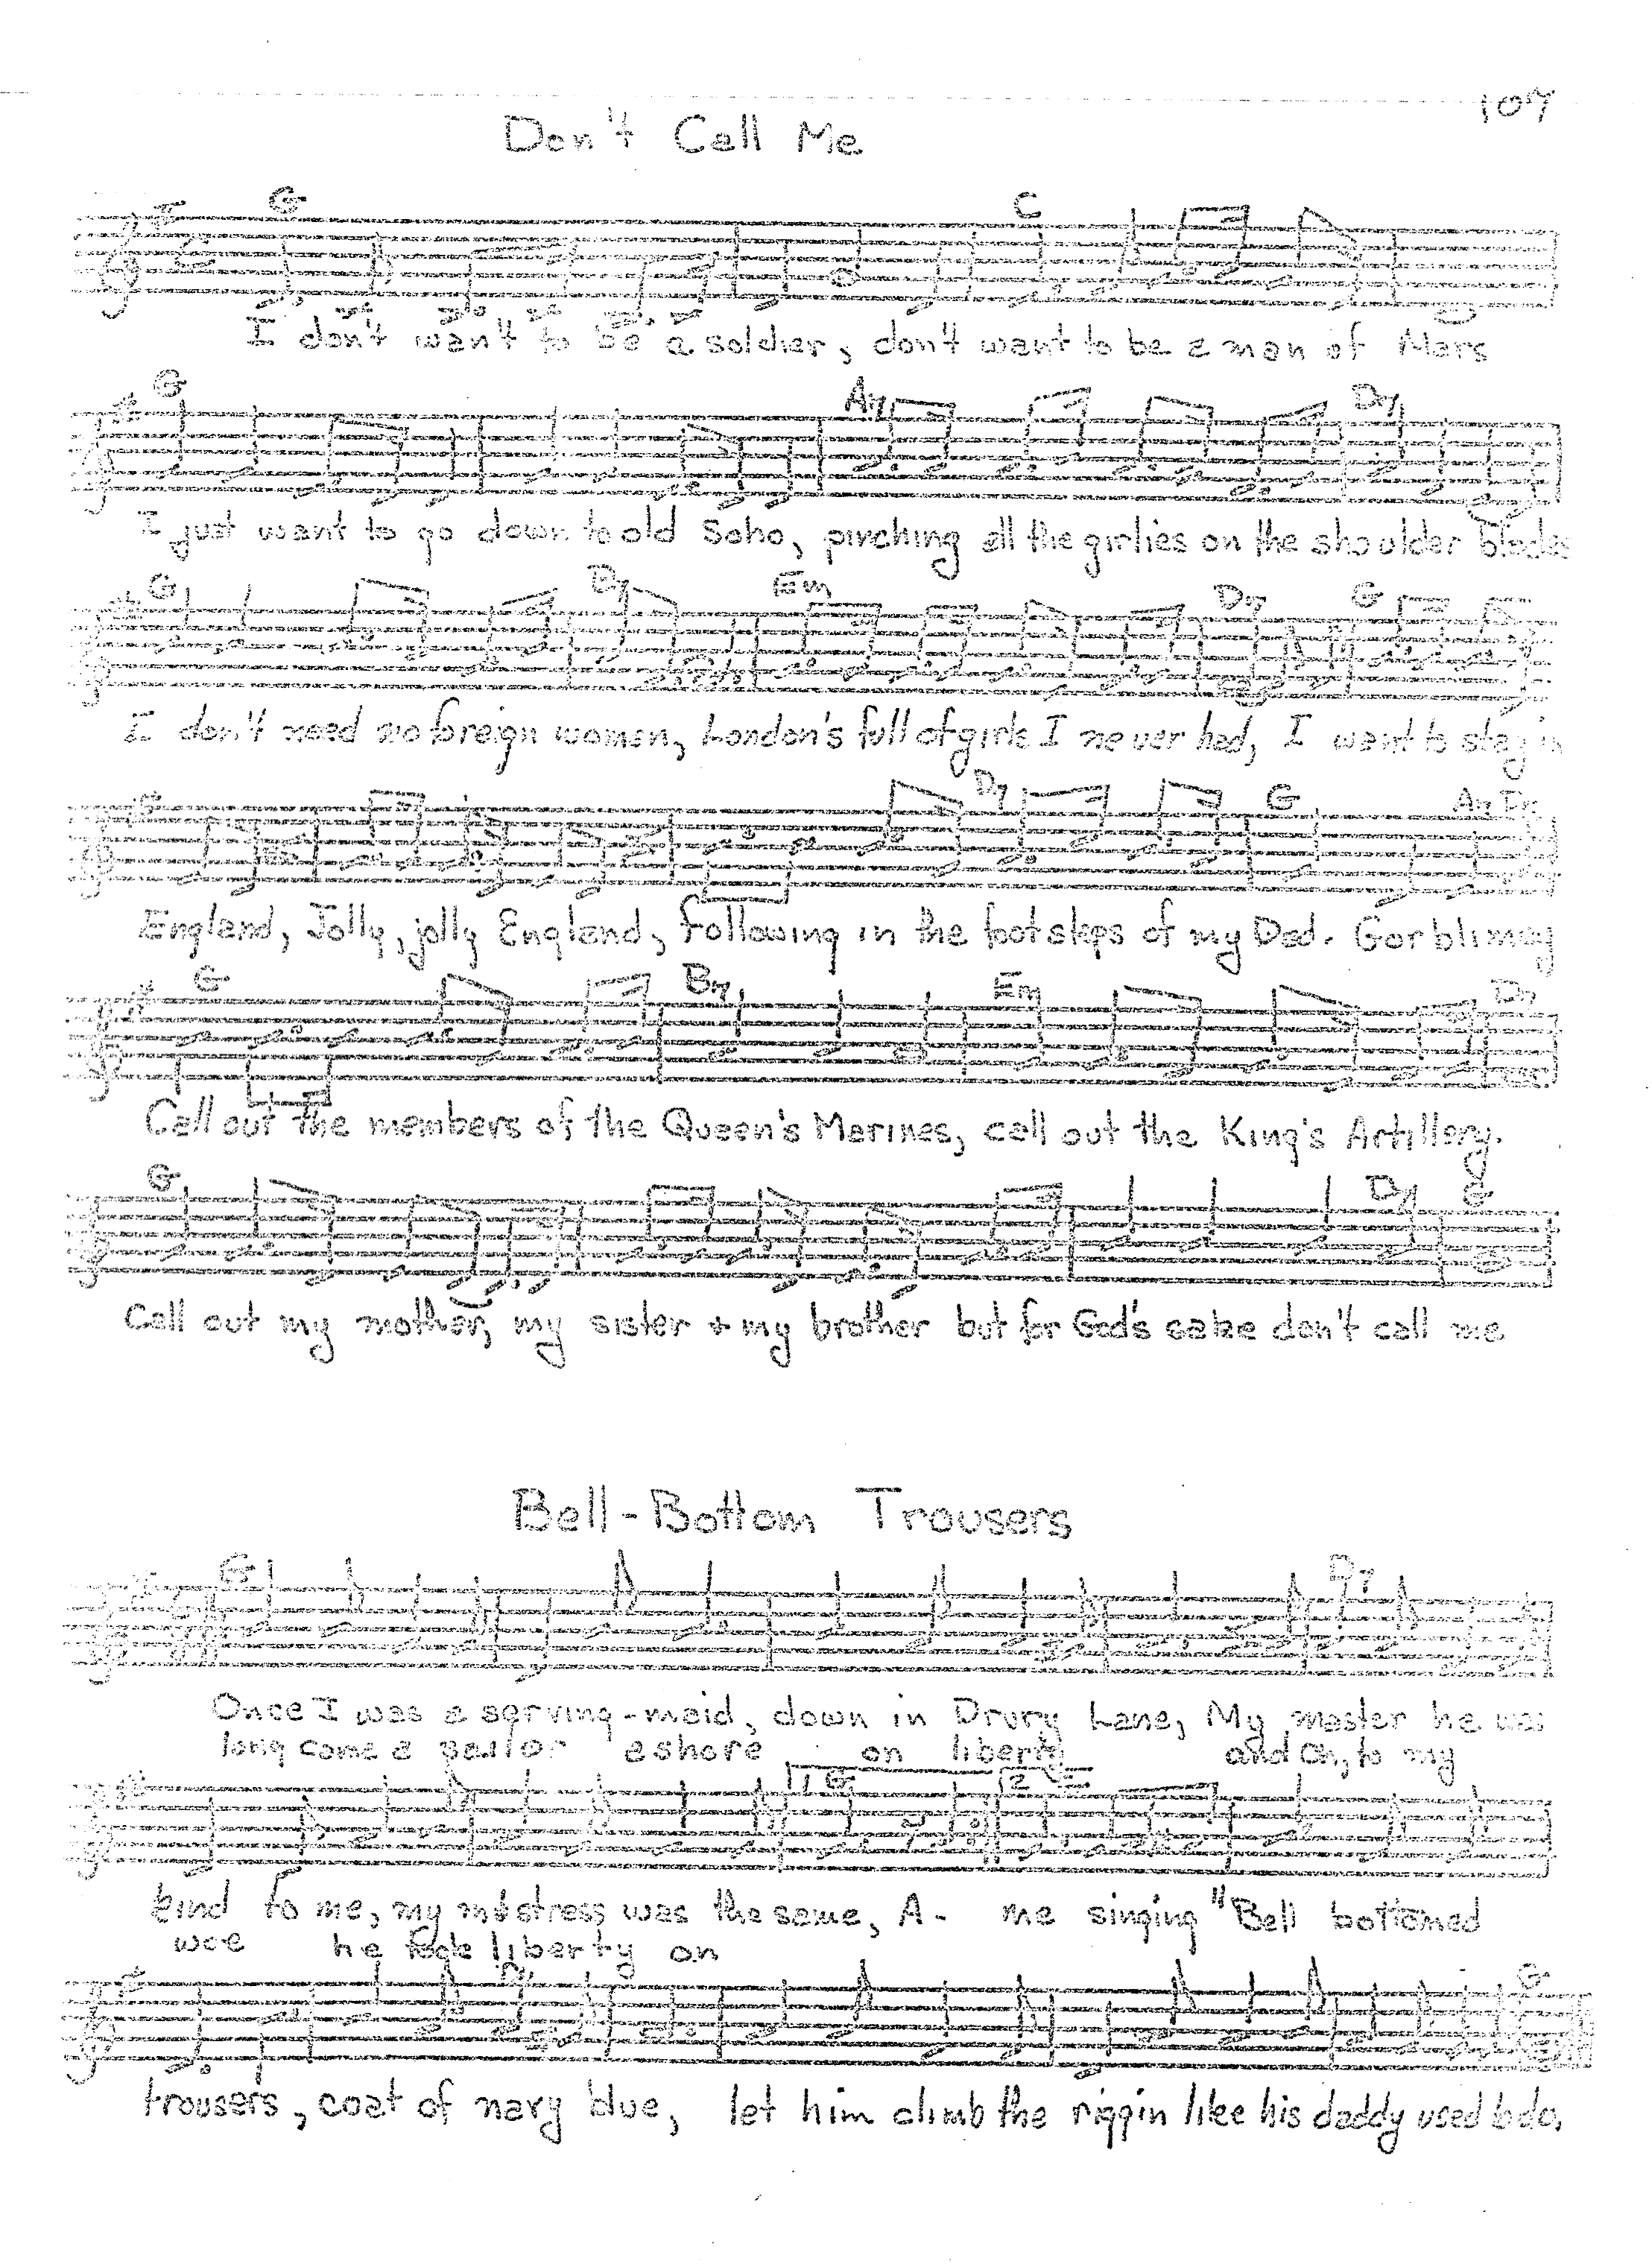 107
Don't Call Me
G C
I don't want to be a soldier, don't want to be a man of Mars
G A7 D7
I just want to go down to old Soho, pinching all the girlies on the shoulder blades
G B7 Em D7 G
I don't need no foreign women, London's full of girls I never had, I want to stay in
D7 G A7 D7
England, Jolly, jolly England, Following in the footsteps of my Dad. Gorblimey
G B7 Em D7
Call out the members of the Queen's Marines, call out the King's Artillery.
G D7 G
Call out my mother, my sister + my brother but for God's sake don't call me
Bell-Bottom Trousers
G D7
Once I was a serving-maid, down in Drury Lane, My master he was
long came a sailor ashore on liberty and Oh, to my
1 G 2 G
kind to me, my mistress was the same, A- me singing "Bell bottomed
woe he took liberty on
G
trousers, coat of navy blue, let him climb the riggin like his daddy used to do,